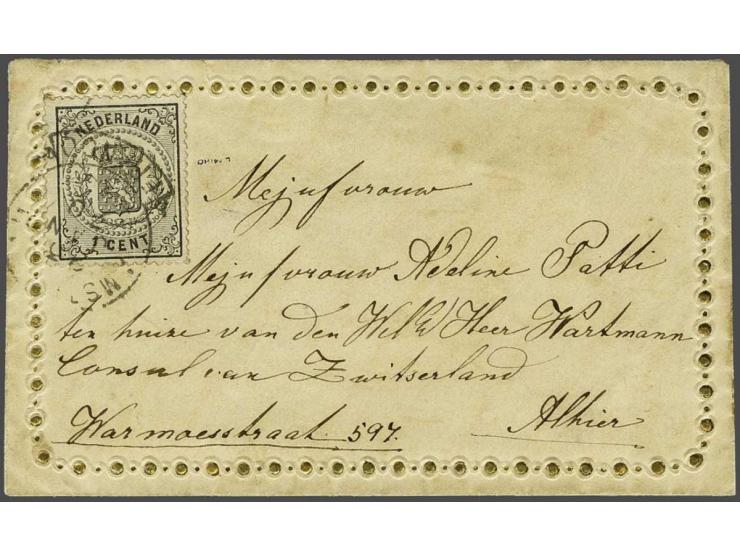 NEDERLAND
1 CENT
Mejufvrouw
Mejufvrouw Adeline Patti
ten huize van den WelEd Heer Wartmann
Consul van Zwitserland
Warmoesstraat 597.
Alhier